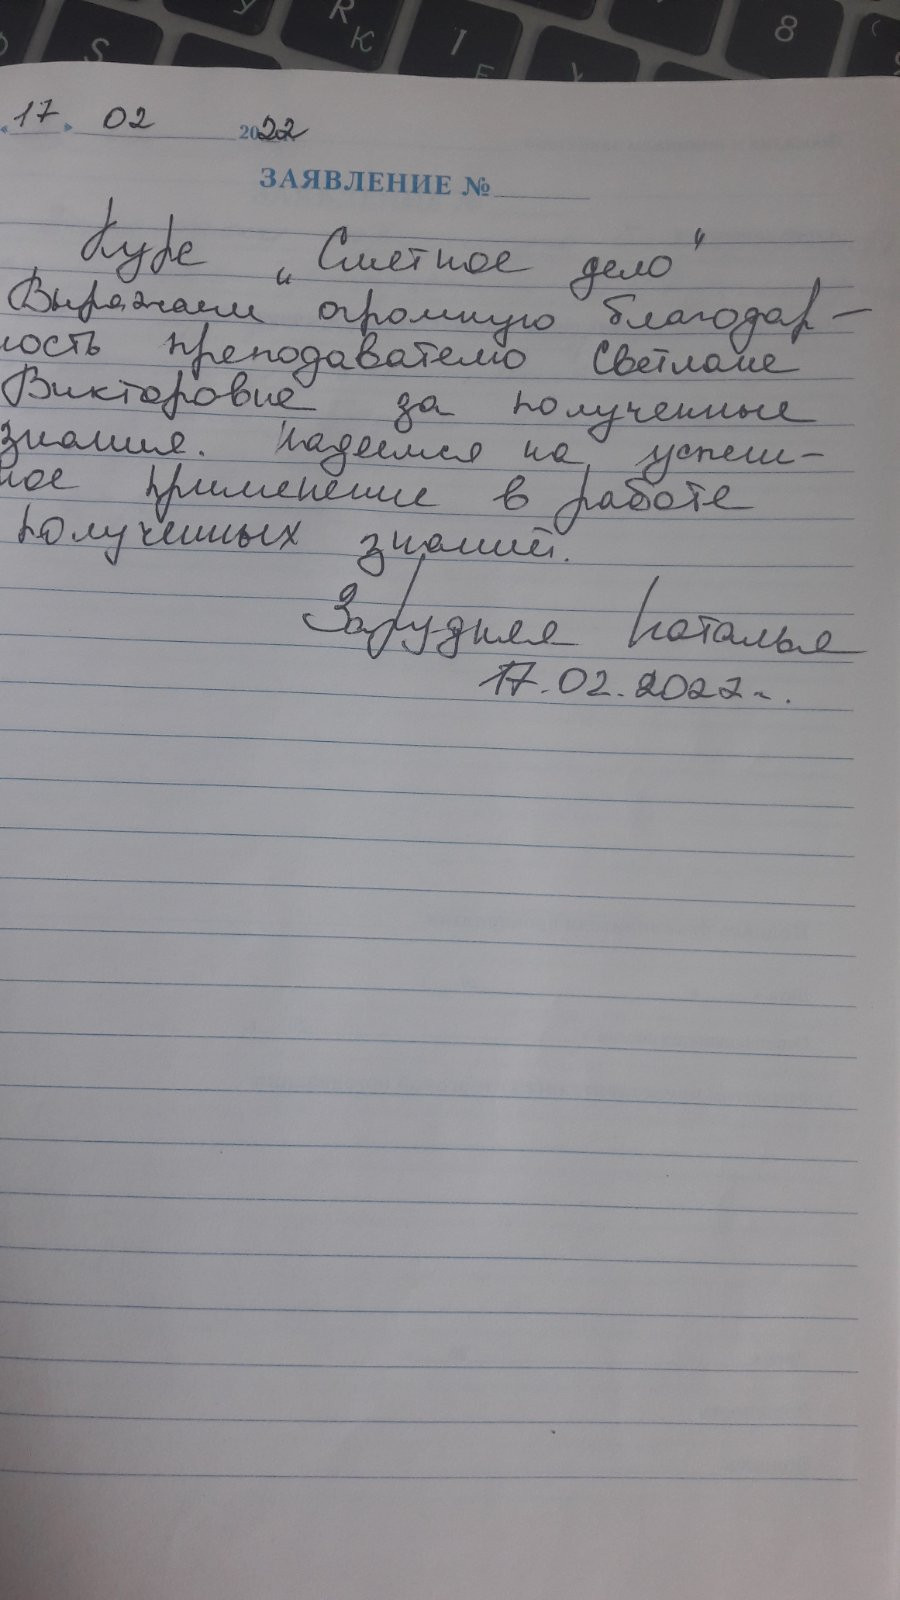 «17» 02 2022
ЗАЯВЛЕНИЕ №
Курс „Сметное дело"
Выражаем огромную благодар-
ность преподавателю Светлане
Викторовне за полученные
знания. Надеемся на успеш-
ное применение в работе
полученных знаний.
Зарудняя Наталья
17.02.2022г.